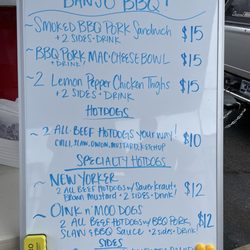 BANJO BBQ!
~SMOKED BBQ PORK Sandwich $15
+ 2 SIDES + DRINK
~BBQ PORK MAC+CHEESE BOWL $15
+ DRINK!
~2 Lemon Pepper Chicken Thighs $15
+ 2 SIDES + DRINK
HOTDOGS
~2 ALL BEEF HOTDOGS YOUR WAY! $10
CHILI, SLAW, ONION, MUSTARD, KETCHUP
SPECIALTY HOTDOGS
~NEW YORKER $12
2 ALL BEEF HOTDOGS w/ Sauerkraut +
Brown Mustard + 2 sides + DRINK
~OINK n' MOO DOGS $12
2 ALL BEEF HOTDOGS w/ BBQ PORK,
SLAW & BBQ SAUCE + 2 sides + DRINK!
SIDES